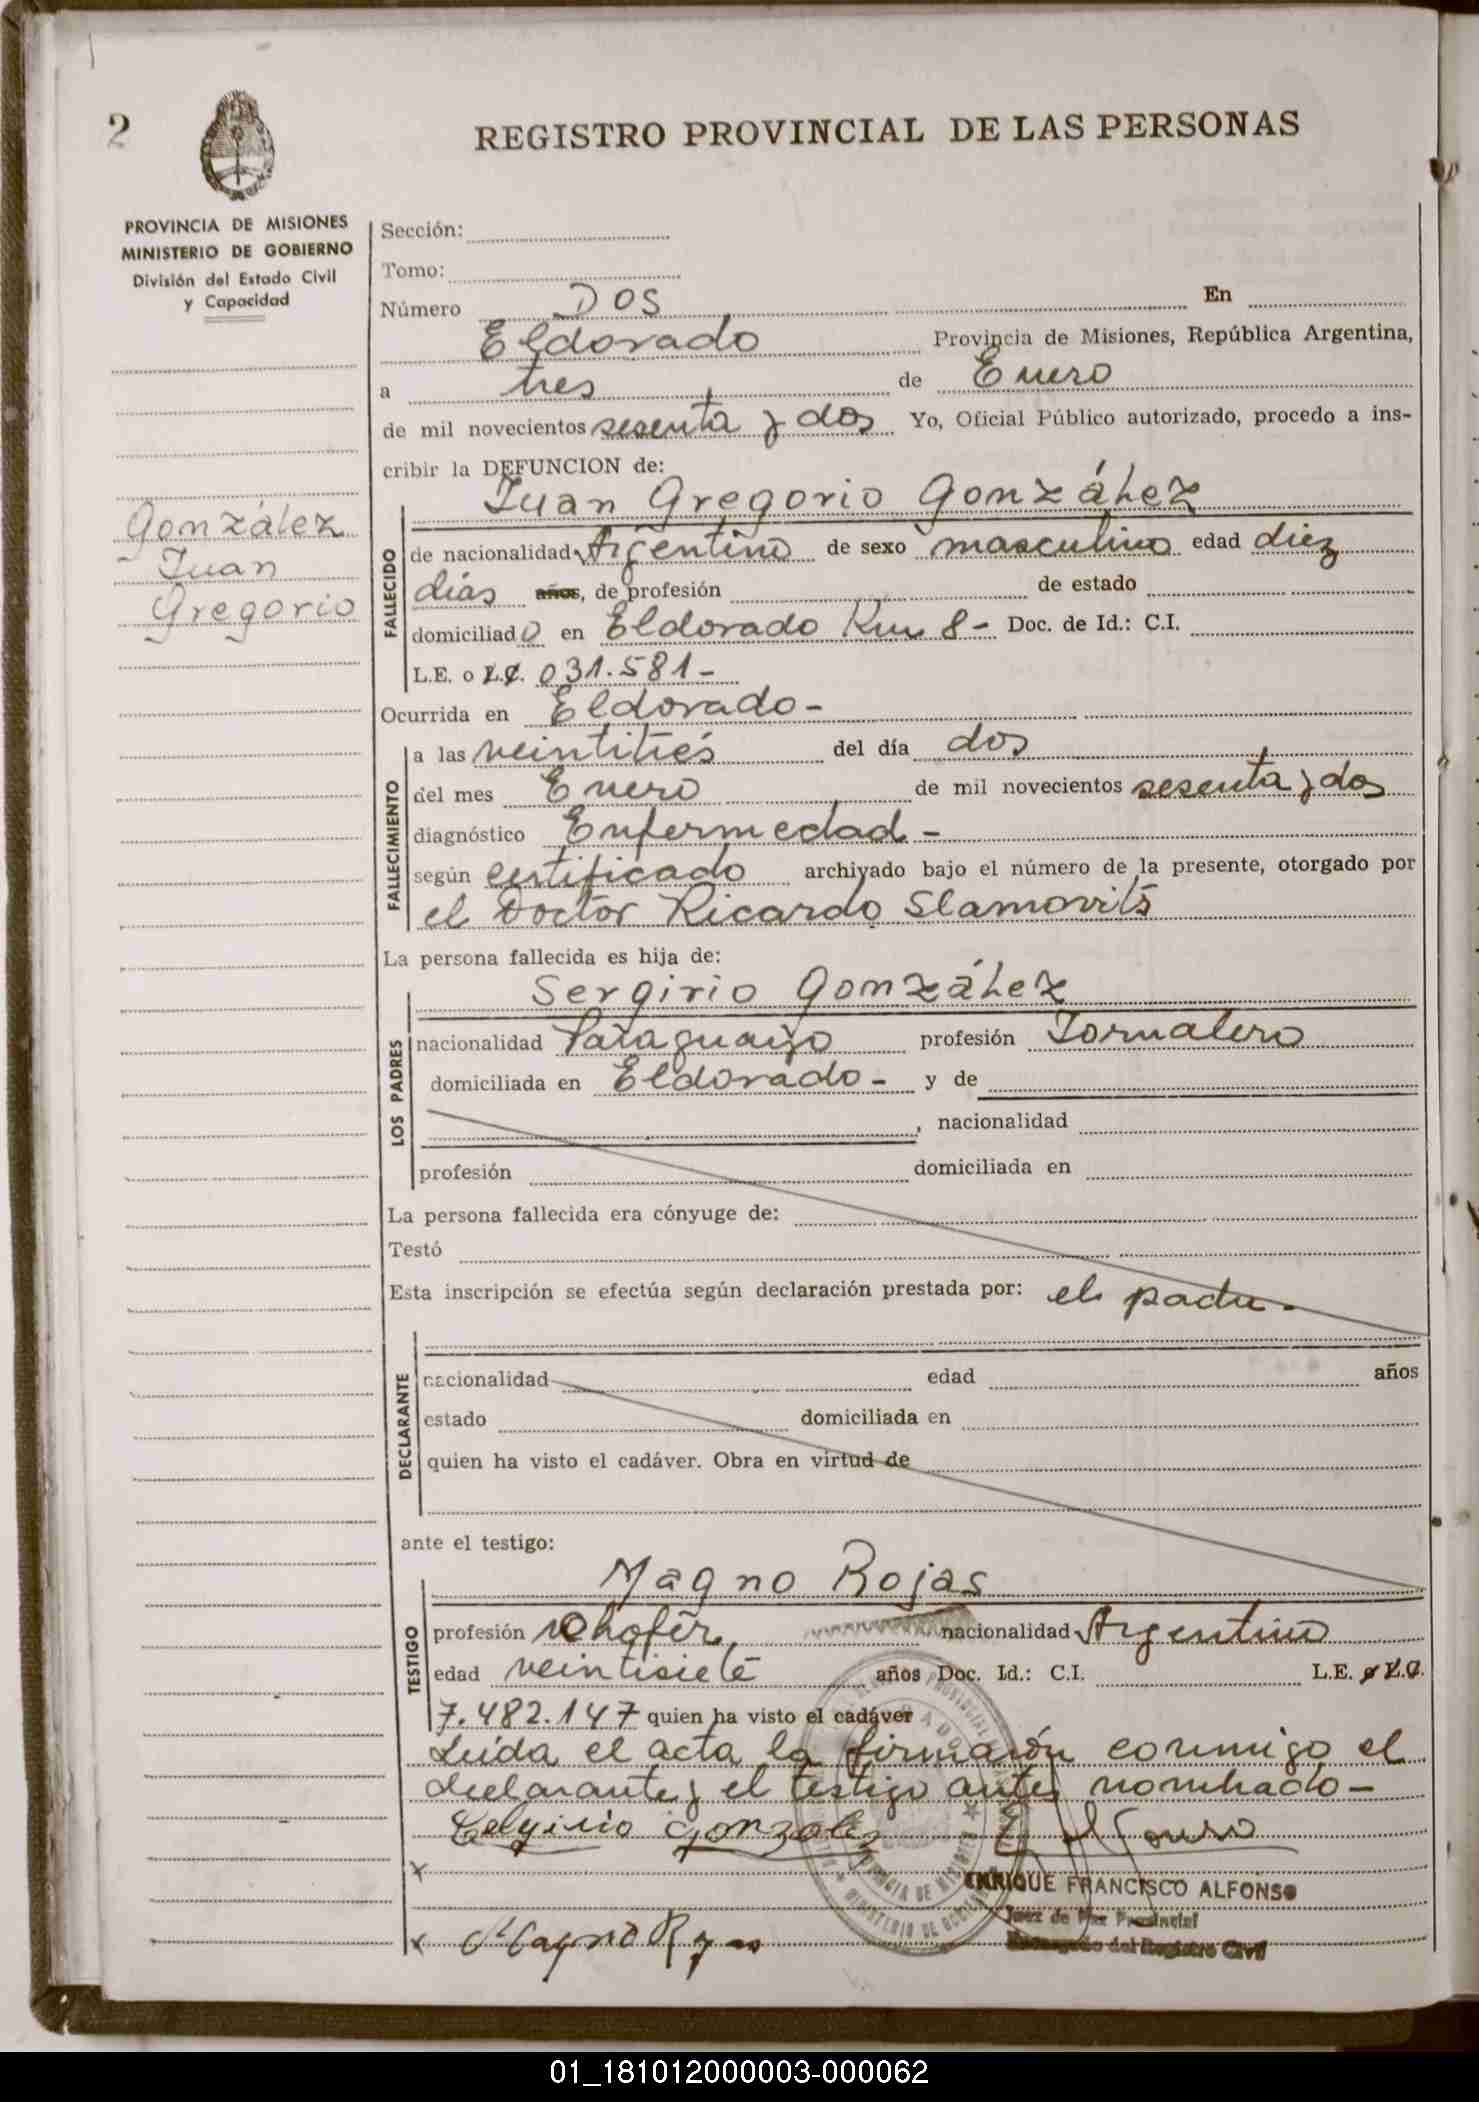 2
REGISTRO PROVINCIAL DE LAS PERSONAS
PROVINCIA DE MISIONES
MINISTERIO DE GOBIERNO
División del Estado Civil
y Capacidad
González
Juan
Gregorio
Sección:
Tomo:
Número DOS En
Eldorado Provincia de Misiones, República Argentina,
a tres de Enero
de mil novecientos sesenta y dos Yo, Oficial Público autorizado, procedo a ins-
cribir la DEFUNCION de:
Juan Gregorio González
FALLECIDO
de nacionalidad Argentino de sexo masculino edad diez
días años, de profesión de estado
domiciliado en Eldorado Km 8- Doc. de Id.: C.I.
L.E. o L.C. 031.581-
Ocurrida en Eldorado-
FALLECIMIENTO
a las veintitrés del día dos
del mes Enero de mil novecientos sesenta y dos
diagnóstico Enfermedad-
según certificado archivado bajo el número de la presente, otorgado por
el Doctor Ricardo Slamovits
La persona fallecida es hija de:
LOS PADRES
Sergirio González
nacionalidad Paraguayo profesión Jornalero
domiciliada en Eldorado- y de
, nacionalidad
profesión domiciliada en
La persona fallecida era cónyuge de:
Testó
Esta inscripción se efectúa según declaración prestada por: el padre-
DECLARANTE
nacionalidad edad años
estado domiciliada en
quien ha visto el cadáver. Obra en virtud de
ante el testigo:
TESTIGO
Magno Rojas
profesión chofer, nacionalidad Argentino
edad veintisiete años Doc. Id.: C.I. L.E. o L.C.
7.482.147 quien ha visto el cadáver
Leída el acta la firmarón conmigo el
declarante y el testigo antes nombrado-
Celgirio Gonzalez
ENRIQUE FRANCISCO ALFONSO
Juez de Paz Provincial
Encargado del Registro Civil
x
x Magno Rojas
01_181012000003-000062